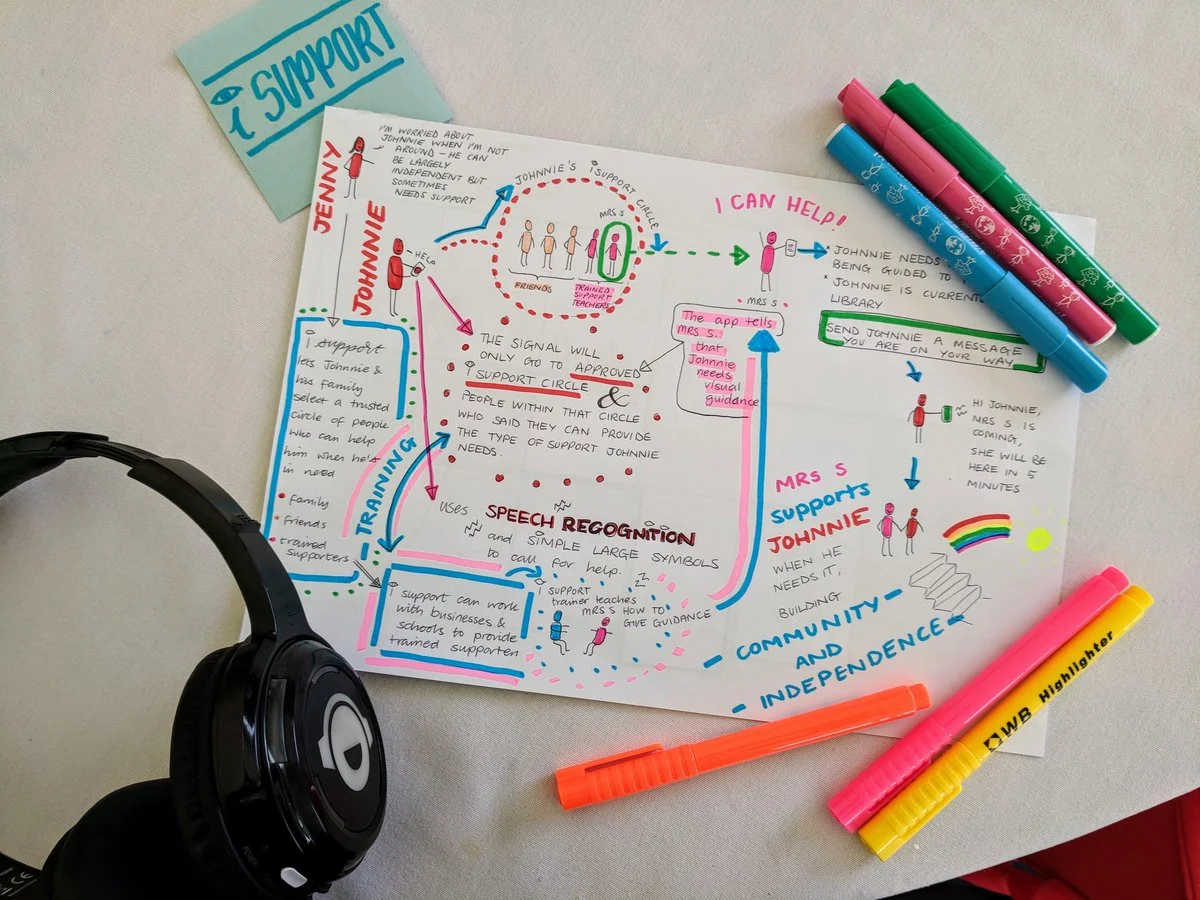 i SUPPORT
JENNY
I'M WORRIED ABOUT
JOHNNIE WHEN I'M NOT
AROUND - HE CAN
BE LARGELY
INDEPENDENT BUT
SOMETIMES
NEEDS SUPPORT
JOHNNIE
HELP
JOHNNIE'S iSUPPORT CIRCLE
MRS S
FRIENDS
TRAINED
SUPPORT
TEACHERS
I CAN HELP!
MRS S
* JOHNNIE NEEDS
BEING GUIDED TO
* JOHNNIE IS
LIBRARY
SEND JOHNNIE A MESSAGE
YOU ARE ON YOUR WAY
HI JOHNNIE,
MRS S IS
COMING,
SHE WILL BE
HERE IN 5
MINUTES
The app tells
MRS S.
that
Johnnie
needs
visual
guidance
THE SIGNAL WILL
ONLY GO TO APPROVED
i SUPPORT CIRCLE &
PEOPLE WITHIN THAT CIRCLE
WHO SAID THEY CAN PROVIDE
THE TYPE OF SUPPORT JOHNNIE
NEEDS.
i support
lets Johnnie &
his family
select a trusted
circle of people
who can help
him when he's
in need
• family
• friends
• trained
supporters
TRAINING
USES SPEECH RECOGNITION
and SIMPLE LARGE SYMBOLS
to call for help.
i support can work
with businesses &
schools to provide
trained supporters
i SUPPORT
trainer teaches
MRS S HOW TO
GIVE GUIDANCE
MRS S
supports
JOHNNIE
WHEN HE
NEEDS IT,
BUILDING
- COMMUNITY -
AND
- INDEPENDENCE -
WB Highlighter
POWER